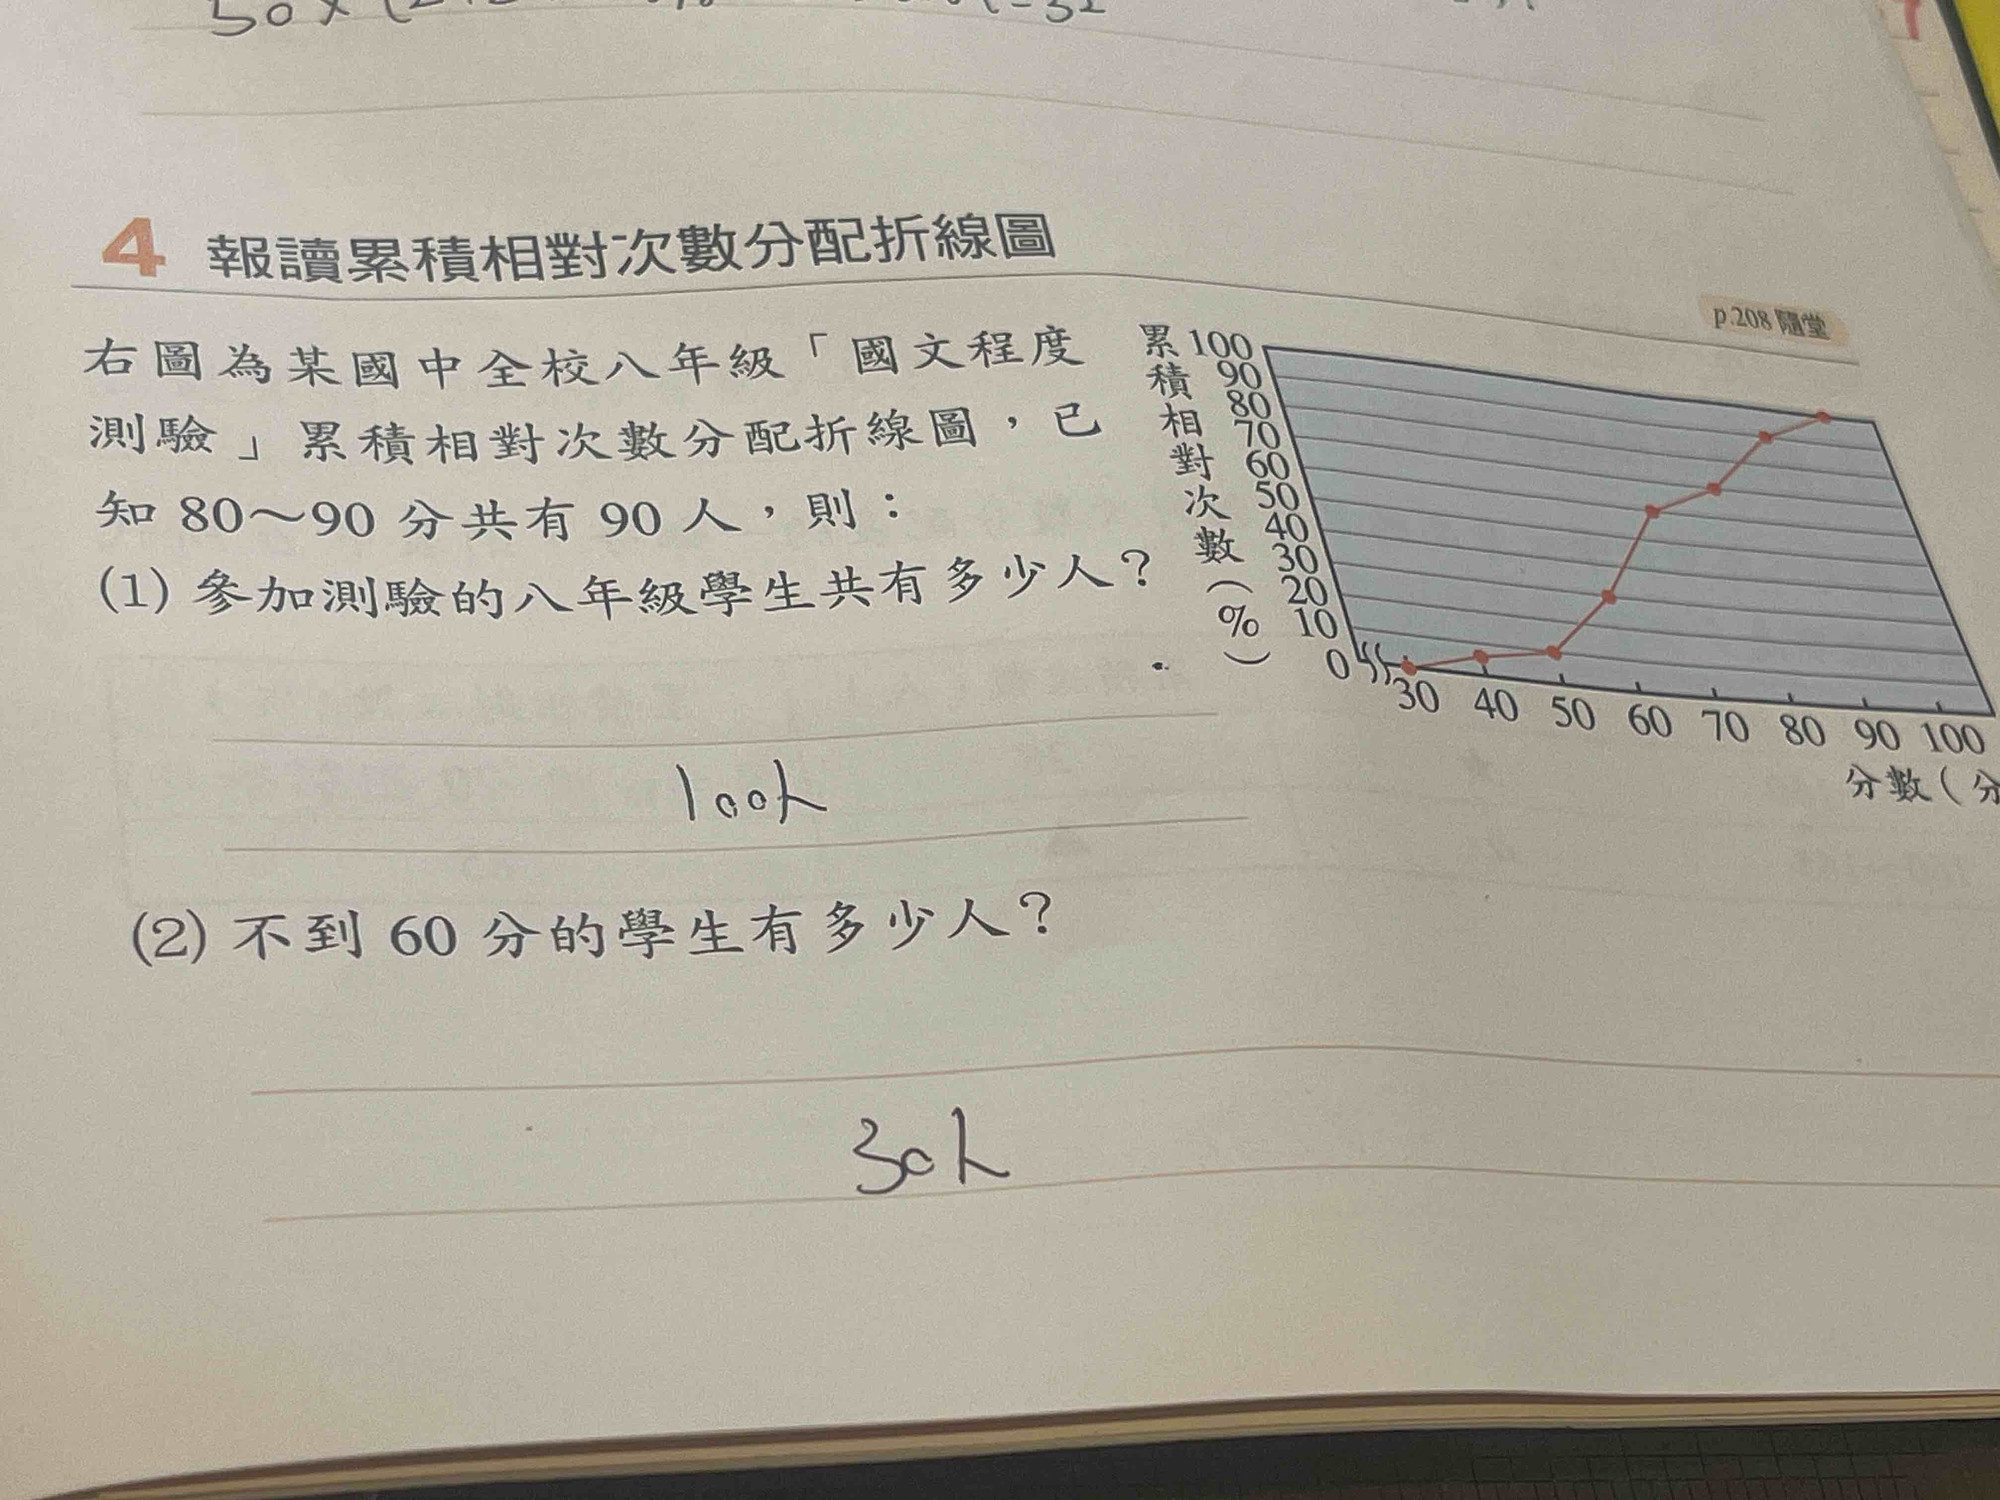 4 報讀累積相對次數分配折線圖
p.208 隨堂
右圖為某國中全校八年級「國文程度
測驗」累積相對次數分配折線圖，已
知 80～90 分共有 90 人，則：
(1) 參加測驗的八年級學生共有多少人？
100人
(2) 不到 60 分的學生有多少人？
30人
累積相對次數(%)
100
90
80
70
60
50
40
30
20
10
0
30 40 50 60 70 80 90 100
分數(分